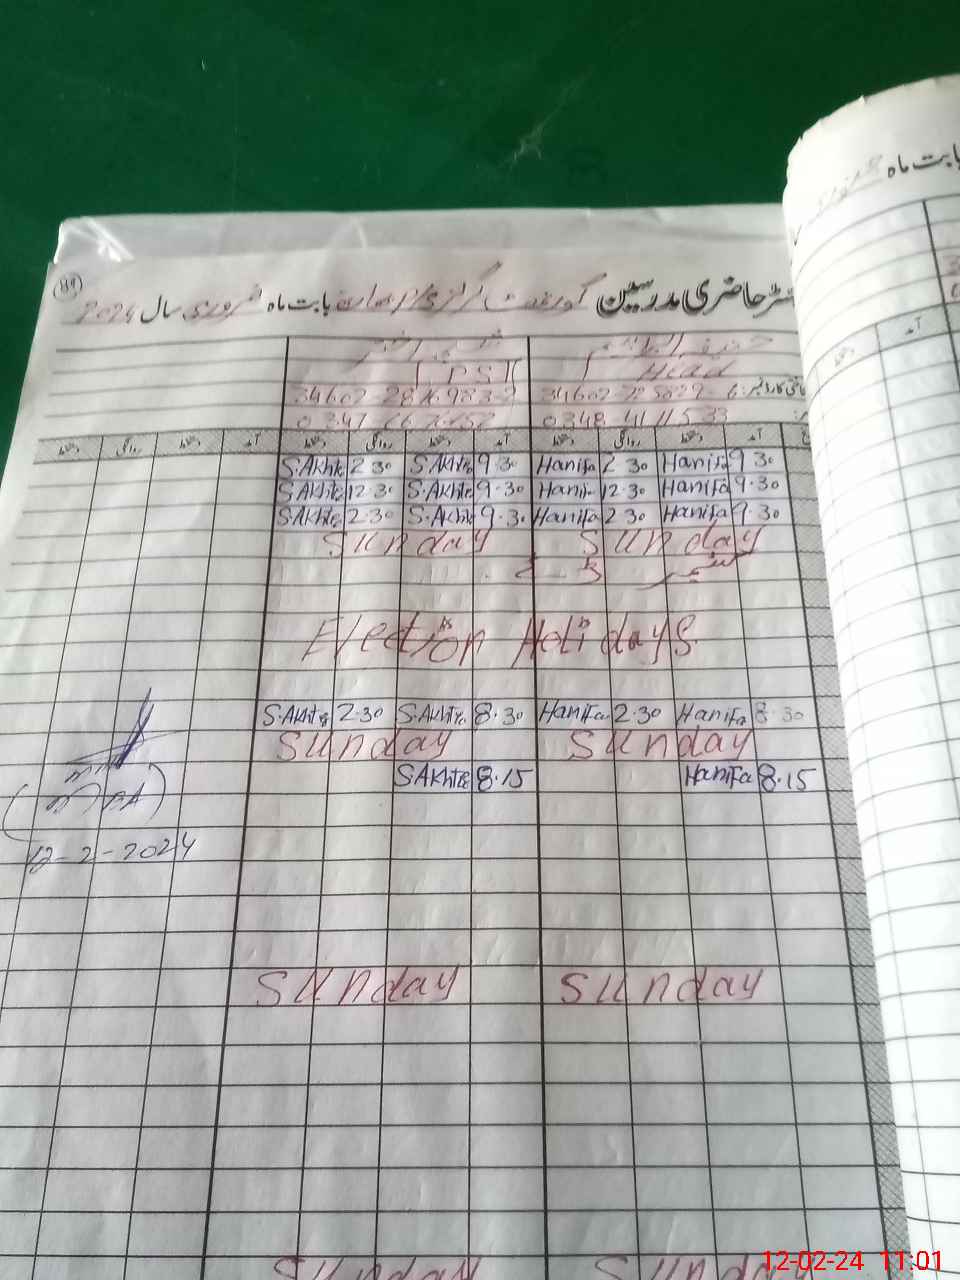 89
رجسٹر حاضری مدرسین گورنمنٹ گرلز بابت ماہ فروری سال 2024
بابت ماہ
Head
PST
34602-
34602-
0348 4111533
0347
آمد دستخط روانگی دستخط آمد دستخط روانگی دستخط آمد دستخط روانگی دستخط
آمد دستخط
S.Akhtr 2.30 S.Akhtr 9.30 Hanifa 2.30 Hanifa 9.30
S.Akhtr 12.30 S.Akhtr 9.30 Hanifa 12.30 Hanifa 9.30
S.Akhtr 2.30 S.Akhtr 9.30 Hanifa 2.30 Hanifa 9.30
Sunday Sunday
کشمیر ڈے
Election Holidays.
S.Akhtr 2.30 S.Akhtr 8.30 Hanifa 2.30 Hanifa 8.30
Sunday Sunday
S.Akhtr 8.15 Hanifa 8.15
12-2-2024
Sunday Sunday
Sunday Sunday
12-02-24 11:01